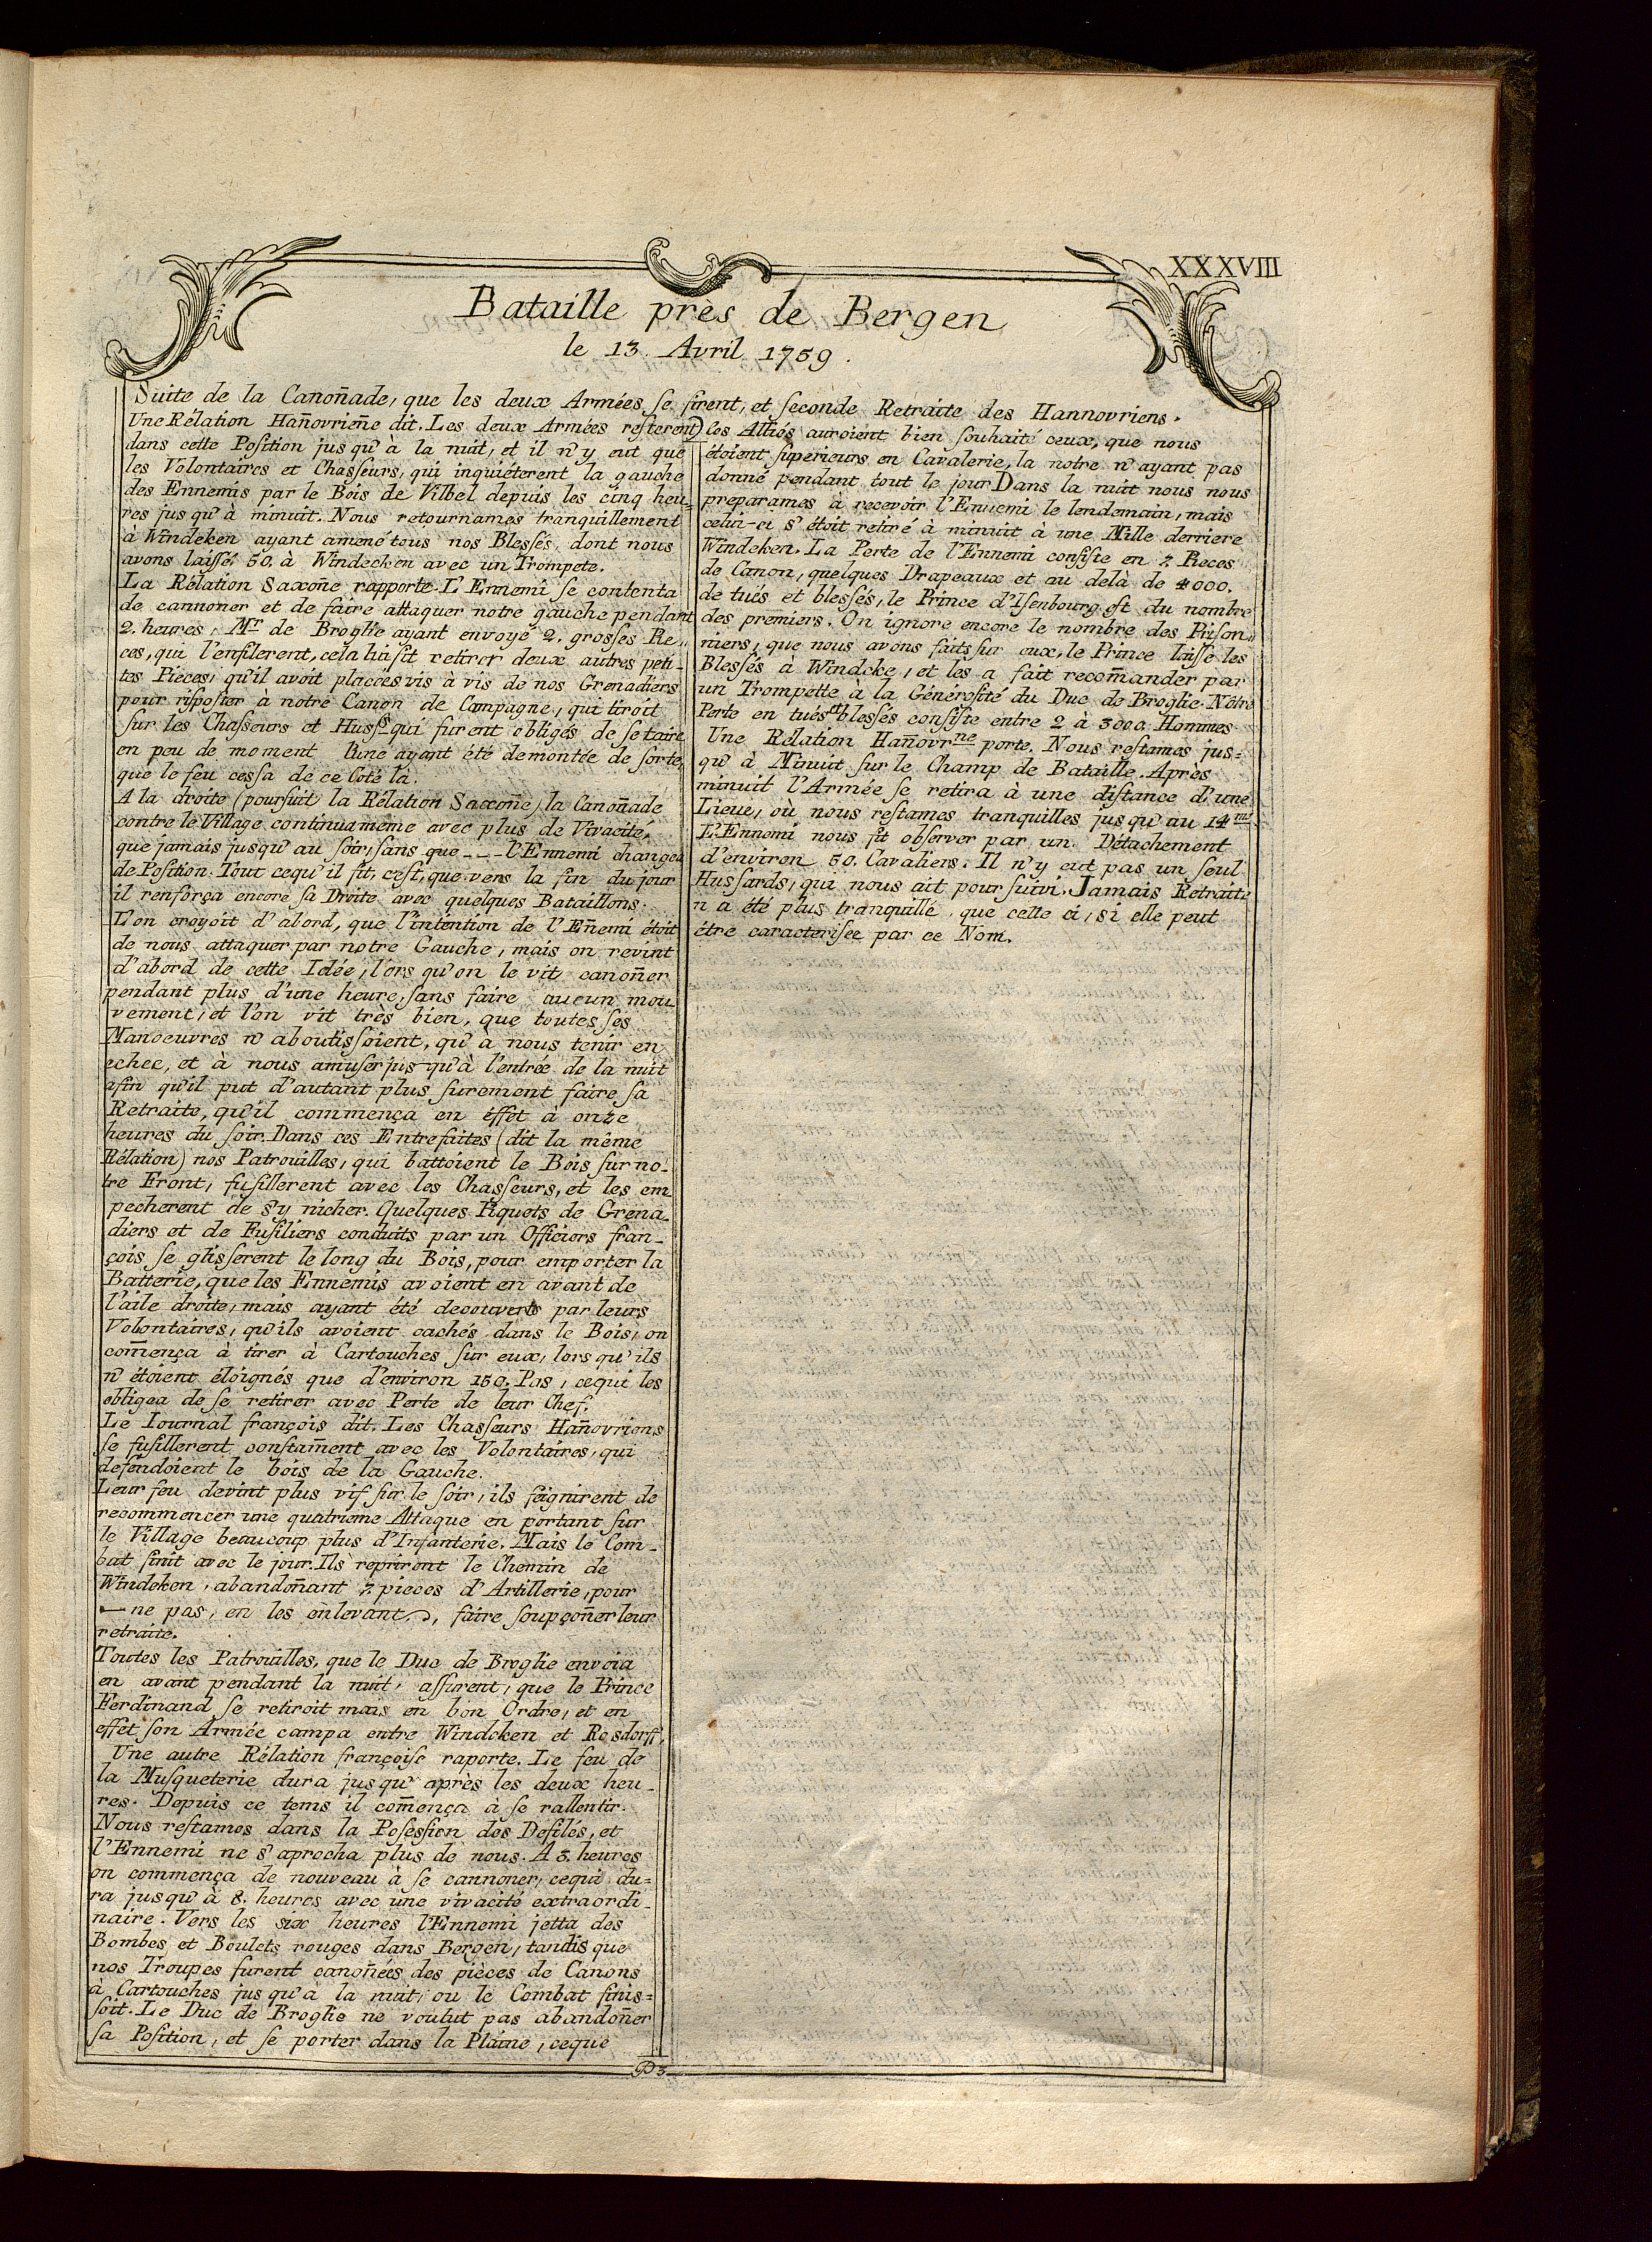 XXXVIII
Bataille près de Bergen
le 13. Avril 1759.
Suite de la Canoñade, que les deux Armées se firent, et seconde Retraite des Hannovriens.
Une Rélation Hañovrieñe dit. Les deux Armées resterent
dans cette Position jusqu'à la nuit, et il n'y eut que
les Volontaires et Chasseurs, qui inquiéterent la gauche
des Ennemis par le Bois de Vilbel depuis les cinq heu=
res jusqu'à minuit. Nous retournames tranquillement
à Windeken ayant amené tous nos Blessés, dont nous
avons laissé 50. à Windecken avec un Trompete.
La Rélation Saxoñe rapporte. L'Ennemi se contenta
de cannoner et de faire attaquer notre gauche pendant
2. heures, Mr de Broglie ayant envoyé 2. grosses Pie„
ces, qui l'enfilerent, cela lui fit retirer deux autres peti-
tes Piéces, qu'il avoit placées vis à vis de nos Grenadiers
pour riposter à notre Canon de Campagne, qui tiroit
sur les Chasseurs et Hussds qui furent obligés de se taire
en peu de moment l'une ayant été demontée de sorte,
que le feu cessa de ce Coté là.
A la droite (poursuit la Rélation Saxoñe) la Canoñade
contre le Village continua même avec plus de Vivacité,
que jamais jusqu'au soir, sans que --- l'Ennemi changea
de Position. Tout cequ'il fit, c'est, que vers la fin du jour
il renforça encore sa Droite avec quelques Bataillons.
L'on croyoit d'abord, que l'intention de l'Eñemi étoit
de nous attaquer par notre Gauche, mais on revint
d'abord de cette Idée, l'ors qu'on le vit, canoñer
pendant plus d'une heure, sans faire aucun mou
vement, et l'on vit très bien, que toutes ses
Manoeuvres n'aboutissoient, qu'à nous tenir en
echec, et à nous amuser jus-qu'à l'entrée de la nuit
afin qu'il put d'autant plus surement faire sa
Retraite, qu'il commença en éffet à onze
heures du soir. Dans ces Entrefaites (dit la même
Rélation) nos Patrouilles, qui battoient le Bois sur no-
tre Front, fusillerent avec les Chasseurs, et les em
pecherent de s'y nicher. Quelques Piquets de Grena-
diers et de Fusiliers conduits par un Officiers fran-
çois se glisserent le long du Bois, pour emporter la
Batterie, que les Ennemis avoient en avant de
l'aile droite, mais ayant été decouverts par leurs
Volontaires, qu'ils avoient cachés dans le Bois, on
com̃ença à tirer à Cartouches sur eux, lors qu'ils
n'étoient éloignés que d'environ 150. Pas, cequi les
obligea de se retirer avec Perte de leur Chef.
Le Iournal françois dit. Les Chasseurs Hañovriens
se fusillerent constam̃ent avec les Volontaires, qui
defendoient le bois de la Gauche.
Leur feu devint plus vif sur le soir, ils feignirent de
recommencer une quatrieme Attaque en portant sur
le Village beaucoup plus d'Infanterie. Mais le Com-
bat finit avec le jour. Ils reprirent le Chemin de
Windeken, abandoñant 7. pieces d'Artillerie, pour
ne pas, en les enlevant, faire soupçoñer leur
retraite.
Toutes les Patrouilles, que le Duc de Broglie envoia
en avant pendant la nuit, assurent, que le Prince
Ferdinand se retiroit mais en bon Ordre, et en
effet son Armée campa entre Windeken et Rosdorff.
Une autre Rélation françoise raporte. Le feu de
la Musqueterie dura jusqu'après les deux heu-
res. Depuis ce tems il com̃ença à se rallentir.
Nous restames dans la Posession des Defilés, et
l'Ennemi ne s'aprocha plus de nous. A 3. heures
on commença de nouveau à se cannoner, cequi du=
ra jusqu'à 8. heures avec une vivacité extraordi-
naire. Vers les six heures l'Ennemi jetta des
Bombes et Boulets rouges dans Bergen, tandis que
nos Troupes furent canoñées des pièces de Canons
à Cartouches jus qu'à la nuit, ou le Combat finis=
soit. Le Duc de Broglie ne voulut pas abandoñer
sa Position, et se porter dans la Plaine, ceque
les Alliés auroient bien souhaité ceux, que nous
étoient superieurs en Cavalerie, la notre n'ayant pas
donné pendant tout le jour Dans la nuit nous nous
preparames à recevoir l'Ennemi le lendemain, mais
celui-ci s'étoit retiré à minuit à une Mille derriere
Windeken. La Perte de l'Ennemi consiste en 7. Pieces
de Canon, quelques Drapeaux et au delà de 4000.
de tués et blessés, le Prince d'Isenbourg est du nombre
des premiers. On ignore encore le nombre des Prison„
niers, que nous avons faits sur eux, le Prince laisse les
Blessés à Windcke, et les a fait recom̃ander par
un Trompette à la Générosité du Duc de Broglie. Nôtre
Perte en tués et blessés consiste entre 2 à 3000. Hommes
Une Rélation Hañovrne porte. Nous restames jus=
qu'à Minuit sur le Champ de Bataille. Après
minuit l'Armée se retira à une distance d'une
Lieue, où nous restames tranquilles jus qu'au 14me
L'Ennemi nous fit observer par un Détachement
d'environ 50. Cavaliers. Il n'y eut pas un seul
Hussards, qui nous ait poursuivi. Jamais Retraite
n'a été plus tranquille, que celle ci, si elle peut
être caracterisée par ce Nom.
P3